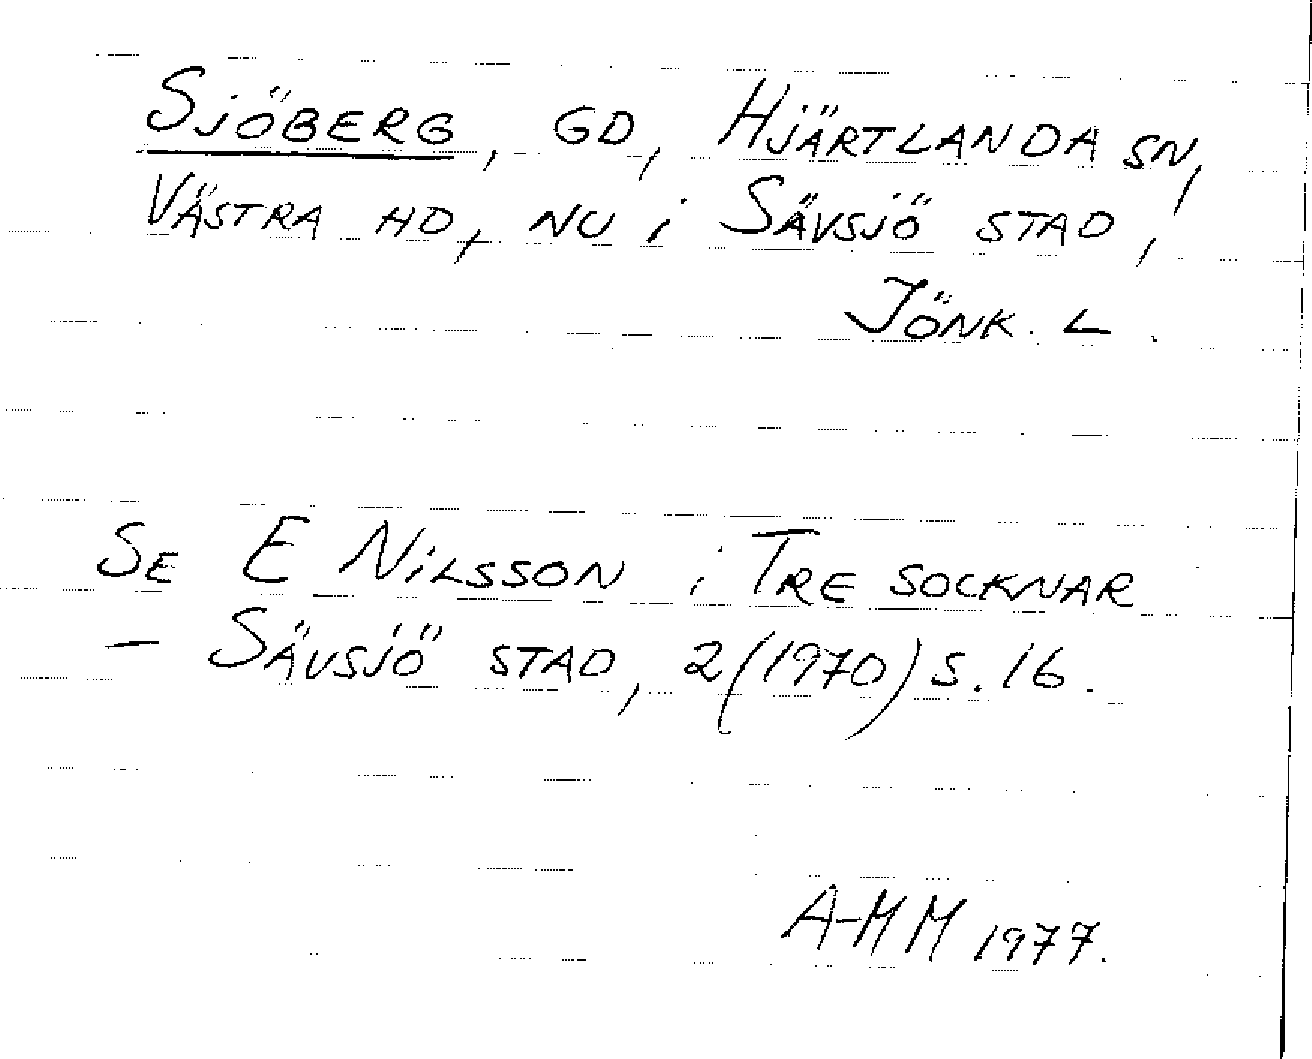 Sjöberg, GD, Hjärtlanda sn,
Västra hd, nu i Sävsjö stad,
Jönk. L.
Se E Nilsson i Tre socknar
– Sävsjö stad, 2 (1970) s. 16.
A-MM 1977.